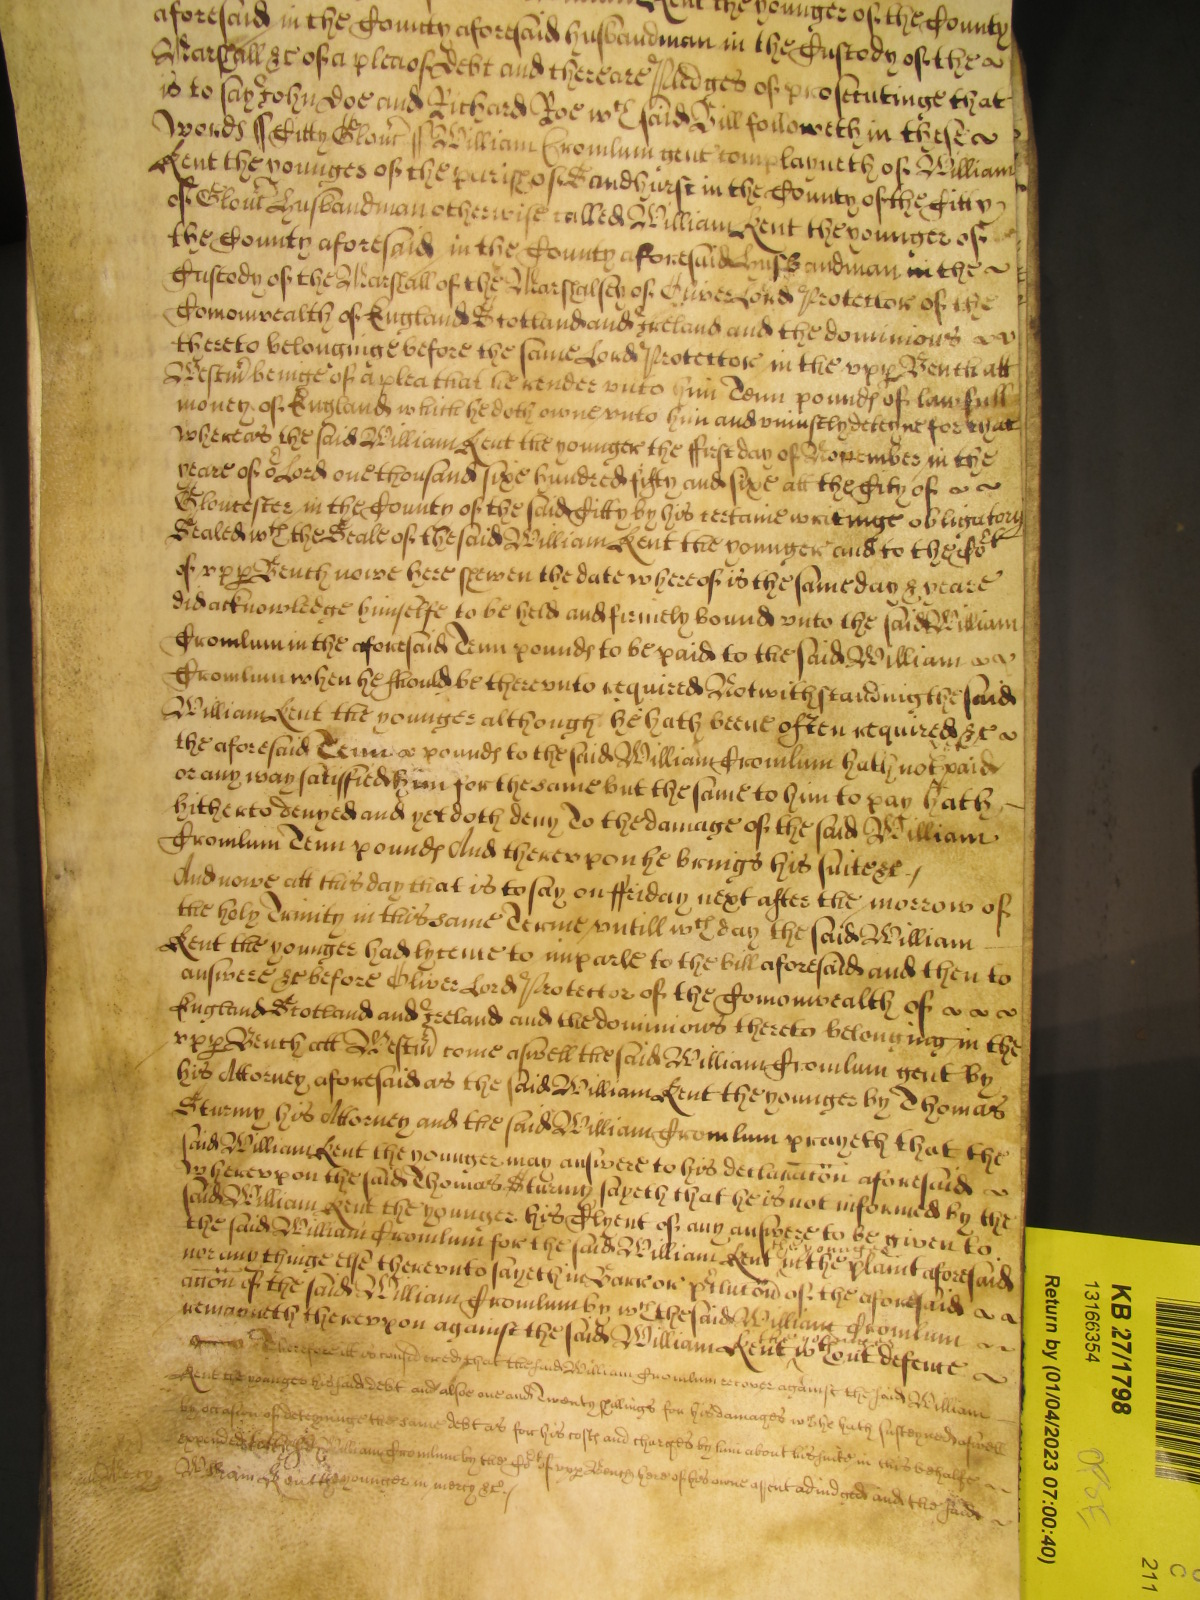 Kent the younger of the County
aforesaid in the County aforesaid husbandman in the Custody of the
Marshall &c of a plea of Debt and there are Pledges of prosecutinge that
is to say John Doe and Richard Roe wch said Bill followeth in these
words ss Citty Glouc ss William Cromlum gent complayneth of William
Kent the younger of the parish of Sandhurst in the County of the Citty
of Glouc husbandman otherwise called William Kent the younger of
the County aforesaid in the County aforesaid husbandman in the
Custody of the Marshall of the Marshalsey of Oliver Lord Protector of the
Comonwealth of England Scotland and Ireland and the dominions
thereto belonginge before the same Lord Protector in the vpp Bench att
Westm beinge of a plea that he render vnto him Tenn pounds of lawfull
money of England which he doth owe vnto him and vniustly deteyne for that
whereas the said William Kent the younger the ffirst day of November in the
yeare of or Lord one thousand sixe hundred fifty and sixe att the City of
Gloucester in the County of the said Citty by his certaine writinge obligatory
Sealed wth the Seale of the said William Kent the younger and to the Cort
of vpp Bench nowe here shewen the date whereof is the same day & yeare
did acknowledge himselfe to be held and firmely bound vnto the said William
Cromlum in the aforesaid Tenn pounds to be paid to the said William
Cromlum when he should be therevnto required Notwithstandinig the said
William Kent the younger although he hath beene often required &c
the aforesaid Tenn pounds to the said William Cromlum hath not paid
or any way satisfied him for the same but the same to him to pay hath
hitherto denyed and yet doth deny To the damage of the said William
Cromlum Tenn pounds And therevpon he brings his suite &c
And nowe att this day that is to say on ffriday next after the morrow of
the holy Trinity in this same Terme vntill wch day the said William
Kent the younger had lycence to imparle to the bill aforesaid and then to
answere &c before Oliver Lord Protector of the Comonwealth of
England Scotland and Ireland and the dominions thereto belonging in the
vpp Bench att Westm come aswell the said William Cromlum gent by
his Attorney aforesaid as the said William Kent the younger by Thomas
Sturmy his Attorney and the said William Cromlum prayeth that the
said William Kent the younger may answere to his declaracon aforesaid
Wherevpon the said Thomas Sturmy sayeth that he is not informed by the
said William Kent the younger his Clyent of any answere to be given to
the said William Cromlum for the said William Kent the younger in the plaint aforesaid
nor any thinge else therevnto sayeth in Barr or p'clucon of the aforesaid
accon of the said William Cromlum by wch the said William Cromlum
remayneth therevpon against the said William Kent the younger wthout defence
Therefore itt is considered that the said William Cromlum recover against the said William
Kent the younger his said debt and alsoe one and Twenty shillings for his damages wch he hath susteyned aswell
by occasion of deteyninge the same debt as for his costs and charges by him about his suite in this behalfe
expended to the said William Cromlum by the Cort of vpp Bench here of his owne assent adiudged and the said
William Kent the younger in mercy &c
Mercy
KB 27/1798
13166354
Return by (01/04/2023 07:00:40)
C
211